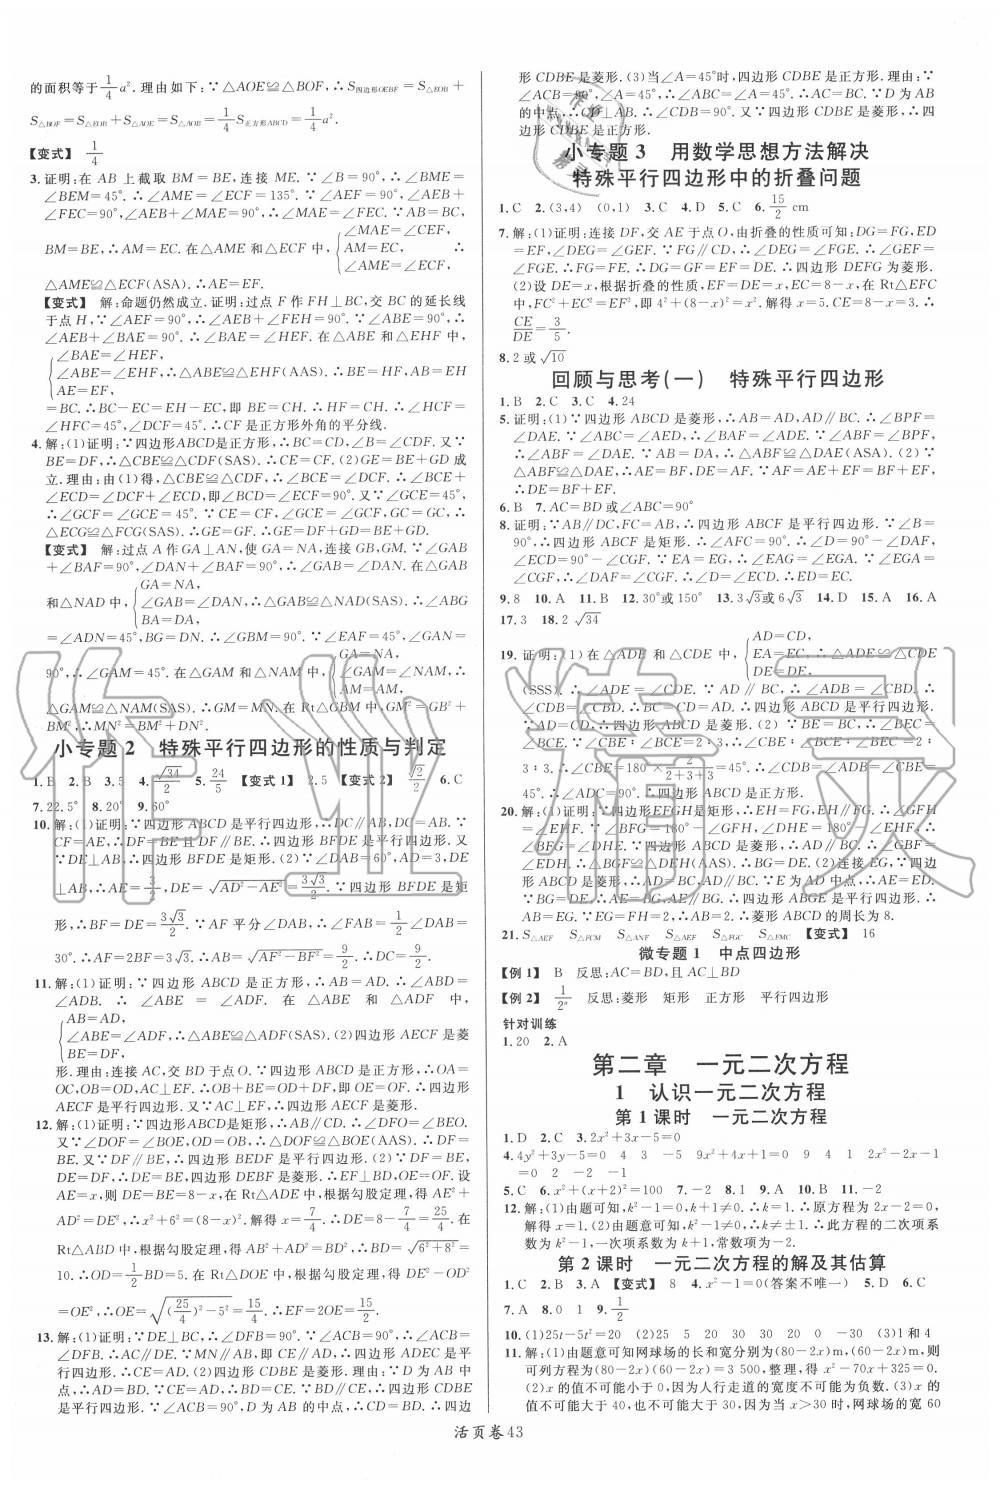 的面积等于1/4a².理由如下:∵△AOE≌△BOF,∴S四边形OEBF=S△EOB+
S△BOF=S△EOB+S△AOE=S△AOB=1/4S正方形ABCD=1/4a².
【变式】 1/4
3.证明:在 AB 上截取 BM=BE,连接 ME.∵∠B=90°,∴∠BME=
∠BEM=45°.∴∠AME=∠ECF=135°.∵∠AEF=90°,∴∠AEB+
∠FEC=90°,∠AEB+∠MAE=90°,∴∠MAE=∠FEC.∵AB=BC,
BM=BE,∴AM=EC.在△AME 和△ECF 中,{∠MAE=∠CEF, AM=EC, ∠AME=∠ECF, ∴
△AME≌△ECF(ASA).∴AE=EF.
【变式】 解:命题仍然成立.证明:过点 F 作 FH⊥BC,交 BC 的延长线
于点 H,∵∠AEF=90°,∴∠AEB+∠FEH=90°.∵∠ABE=90°,∴
∠AEB+∠BAE=90°.∴∠BAE=∠HEF.在△ABE 和△EHF 中,
{∠BAE=∠HEF, ∠ABE=∠EHF=90°,∴△ABE≌△EHF(AAS).∴BE=HF,AB=EH AE=EF.
=BC.∴BC-EC=EH-EC,即 BE=CH.∴HF=CH.∴∠HCF=
∠HFC=45°,∠DCF=45°.∴CF 是正方形外角的平分线.
4.解:(1)证明:∵四边形ABCD是正方形,∴BC=CD,∠B=∠CDF.又∵
BE=DF,∴△CBE≌△CDF(SAS).∴CE=CF.(2)GE=BE+GD 成
立.理由:由(1)得,△CBE≌△CDF,∴∠BCE=∠DCF.∴∠BCE+
∠ECD=∠DCF+∠ECD,即∠BCD=∠ECF=90°.又∵∠GCE=45°,
∴∠GCF=∠GCE=45°.∵CE=CF,∠GCE=∠GCF,GC=GC,∴
△ECG≌△FCG(SAS).∴GE=GF.∴GE=DF+GD=BE+GD.
【变式】 解:过点 A 作 GA⊥AN,使 GA=NA,连接 GB,GM.∵∠GAB
+∠BAF=90°,∠DAN+∠BAF=90°,∴∠GAB=∠DAN.在△GAB
和△NAD 中,{GA=NA, ∠GAB=∠DAN,∴△GAB≌△NAD(SAS).∴∠ABG BA=DA,
=∠ADN=45°,BG=DN.∴∠GBM=90°.∵∠EAF=45°,∠GAN=
90°,∴∠GAM=45°.在△GAM 和△NAM 中,{GA=NA, ∠GAM=∠NAM,∴ AM=AM,
△GAM≌△NAM(SAS).∴GM=NM.在 Rt△GBM 中,GM²=GB²+
BM²,∴MN²=BM²+DN².
小专题 2 特殊平行四边形的性质与判定
1.B 2.B 3.5 4.√34/2 5.24/5 【变式 1】 2.5 【变式 2】 √2/2 6.C
7.22.5° 8.20° 9.60°
10.解:(1)证明:∵四边形 ABCD 是平行四边形,∴DC∥AB,DC=AB.∵
CF=AE,∴DF=BE 且 DF∥BE.∴四边形 BFDE 是平行四边形.又
∵DE⊥AB,∴四边形 BFDE 是矩形.(2)∵∠DAB=60°,AD=3,DE
⊥AB,∴AE=3/2,DE=√(AD²-AE²)=3√3/2.∵四边形 BFDE 是矩
形,∴BF=DE=3√3/2.∵AF 平分∠DAB,∴∠FAB=1/2∠DAB=
30°.∴AF=2BF=3√3.∴AB=√(AF²-BF²)=9/2.
11.解:(1)证明:∵四边形 ABCD 是正方形,∴AB=AD.∴∠ABD=
∠ADB. ∴ ∠ABE = ∠ADF. 在 △ABE 和 △ADF 中,
{AB=AD, ∠ABE=∠ADF,∴△ABE≌△ADF(SAS).(2)四边形 AECF 是菱 BE=DF,
形.理由:连接 AC,交 BD 于点 O.∵四边形 ABCD 是正方形,∴OA=
OC,OB=OD,AC⊥EF.∴OB+BE=OD+DF,即 OE=OF.∴四边形
AECF 是平行四边形.又∵AC⊥EF,∴四边形 AECF 是菱形.
12.解:(1)证明:∵四边形ABCD是矩形,∴AB∥CD.∴∠DFO=∠BEO.
又∵∠DOF=∠BOE,OD=OB,∴△DOF≌△BOE(AAS).∴DF=
BE.又∵DF∥BE,∴四边形 BEDF 是平行四边形.(2)∵DF=BE,
DF∥BE,∴四边形 BEDF 是平行四边形.∵DE=DF,四边形 BEDF
是平行四边形,∴四边形 DEBF 是菱形.∴DE=BE,EF⊥BD.设
AE=x,则 DE=BE=8-x,在 Rt△ADE 中,根据勾股定理,得 AE²+
AD²=DE²,∴x²+6²=(8-x)².解得 x=7/4,∴DE=8-7/4=25/4.在
Rt△ABD 中,根据勾股定理,得 AB²+AD²=BD²,∴BD=√(6²+8²)=
10.∴OD=1/2BD=5.在 Rt△DOE 中,根据勾股定理,得 DE²-OD²
=OE²,∴OE=√((25/4)²-5²)=15/4.∴EF=2OE=15/2.
13.解:(1)证明:∵DE⊥BC,∴∠DFB=90°.∵∠ACB=90°,∴∠ACB=
∠DFB.∴AC∥DE.∵MN∥AB,即 CE∥AD,∴四边形 ADEC 是平
行四边形.∴CE=AD.(2)四边形 CDBE 是菱形.理由:∵D 为 AB 中
点,∴AD=BD.∵CE=AD,∴BD=CE.∵BD∥CE,∴四边形 CDBE
是平行四边形.∵∠ACB=90°,D 为 AB 的中点,∴CD=BD.∴四边
形 CDBE 是菱形.(3)当∠A=45°时,四边形 CDBE 是正方形.理由:∵
∠ACB=90°,∠A=45°,∴∠ABC=∠A=45°.∴AC=BC.∵D 为 AB
的中点,∴CD⊥AB.∴∠CDB=90°.又∵四边形 CDBE 是菱形,∴四
边形 CDBE 是正方形.
小专题 3 用数学思想方法解决
特殊平行四边形中的折叠问题
1.C 2.(3,4) (0,1) 3.C 4.D 5.C 6.15/2 cm
7.解:(1)证明:连接 DF,交 AE 于点 O,由折叠的性质可知:DG=FG,ED
=EF,∠DEG=∠GEF.∵FG∥CD,∴∠DEG=∠FGE.∴∠GEF=
∠FGE.∴FG=FE.∴DG=FG=EF=DE.∴四边形 DEFG 为菱形.
(2)设 DE=x,根据折叠的性质,EF=DE=x,EC=8-x,在 Rt△EFC
中,FC²+EC²=EF²,即 4²+(8-x)²=x².解得 x=5.CE=8-x=3.∴
CE/DE=3/5.
8.2 或 √10
回顾与思考(一) 特殊平行四边形
1.B 2.C 3.C 4.24
5.证明:(1)∵四边形 ABCD 是菱形,∴AB=AD,AD∥BC.∴∠BPF=
∠DAE.∵∠ABC=∠AED,∴∠BAF=∠ADE.∵∠ABF=∠BPF,
∴∠ABF=∠DAE.又∵AB=DA,∴△ABF≌△DAE(ASA).(2)∵
△ABF≌△DAE,∴AE=BF,DE=AF.∵AF=AE+EF=BF+EF,
∴DE=BF+EF.
6.B 7.AC=BD或∠ABC=90°
8.证明:∵AB∥DC,FC=AB,∴四边形 ABCF 是平行四边形.∵∠B=
90°,∴四边形 ABCF 是矩形.∴∠AFC=90°.∴∠D=90°-∠DAF,
∠ECD=90°-∠CGF.∵EA=EG,∴∠EAG=∠EGA.∵∠EGA=
∠CGF,∴∠DAF=∠CGF.∴∠D=∠ECD.∴ED=EC.
9.8 10.A 11.B 12.30°或150° 13.3√3或6√3 14.D 15.A 16.A
17.3 18.2 √34
19.证明:(1)在△ADE 和△CDE 中,{AD=CD, DE=DE,∴△ADE≌△CDE EA=EC,
(SSS).∴∠ADE=∠CDE.∵AD∥BC,∴∠ADE=∠CBD.∴
∠CDE=∠CBD.∴BC=CD.∵AD=CD,∴BC=AD.∴四边形
ABCD 是平行四边形.∵AD∥BC,∴四边形 ABCD 是平行四边形.
∵AD=CD.∴四边形 ABCD 是菱形.(2)∵BE=BC,∴∠BEC=
∠BCE.∵∠CBE:∠BCE=2:3,∴∠CBE:∠BCE:∠BEC=2:
3:3.∴∠CBE=180°×2/(2+3+3)=45°.∵四边形 ABCD 是菱形,∴∠ABE=
45°.∴∠ABC=90°.∴四边形 ABCD 是正方形.
20.解:(1)证明:∵四边形EFGH是矩形,∴EH=FG,EH∥FG.∴∠GFH
=∠EHF.∵∠BFG=180°-∠GFH,∠DHE=180°-∠EHF,∴
∠BFG=∠DHE.∵四边形 ABCD 是菱形,∴AD∥BC.∴∠GBF=
∠EDH.∴△BGF≌△DEH(AAS).∴BG=DE.(2)连接 EG,∵四边
形 ABCD 是菱形,∴AD∥BC,AD=BC.∵E 为 AD 中点,∴AE=ED.
∵BG=DE,∴AE=BG.又∵AE∥BG,∴四边形 ABGE 是平行四边形.∴
AB=EG.∵EG=FH=2,∴AB=2.∴菱形 ABCD 的周长为 8.
21.S△AEF S△FCM S△ANF S△AEF S△FGC S△FMC 【变式】 16
微专题 1 中点四边形
【例 1】 B 反思:AC=BD,且 AC⊥BD
【例 2】 1/2ⁿ 反思:菱形 矩形 正方形 平行四边形
针对训练
1.20 2.A
第二章 一元二次方程
1 认识一元二次方程
第 1 课时 一元二次方程
1.D 2.C 3.2x²+3x-5=0
4.4y²+3y-5=0 4 3 -5 9x²+4x+1=0 9 4 1 2x²-2x-1
=0 2 -2 -1
5.C 6.x²+(x+2)²=100 7.-2 8.1 9.A 10.B 11.-2
12.解:(1)由题可知,k²-1=0,k+1≠0,∴k=1.∴原方程为 2x-2=0,
解得 x=1.(2)由题意可知,k²-1≠0,∴k≠±1.∴此方程的二次项系
数为 k²-1,一次项系数为 k+1,常数项为-2.
第 2 课时 一元二次方程的解及其估算
1.C 2.B 3.A 【变式】 8 4.x²-1=0(答案不唯一) 5.D 6.C
7.A 8.0 1 9.1/2
10.(1)25t-5t²=0 (2)25 5 20 30 30 20 0 -30 (3)1 和 4
11.解:(1)由题意可知网球场的长和宽分别为(80-2x)m,(60-2x)m,则
可列方程为(80-2x)(60-2x)=3 500,整理,得 x²-70x+325=0.
(2)x 的值不可能小于 0,因为人行走道的宽度不可能为负数.(3)x
的值不可能大于 40,也不可能大于 30,因为当 x>30 时,网球场的宽 60
活页卷43
作业精灵